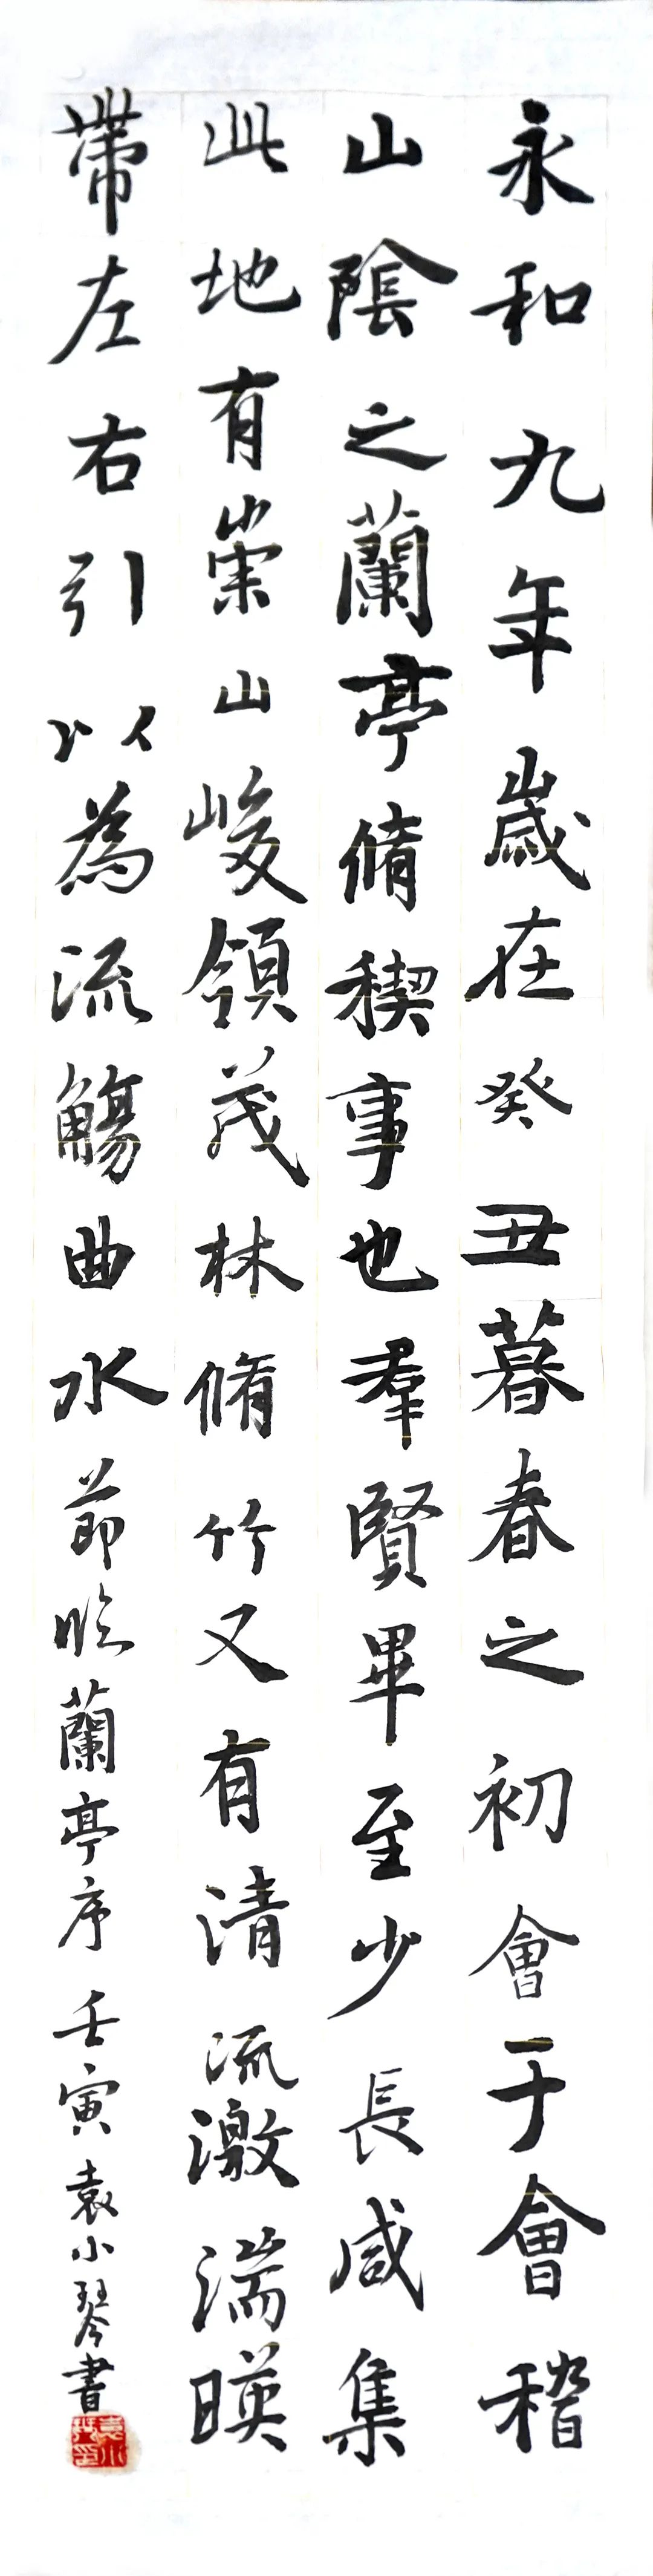 永和九年歲在癸丑暮春之初會于會稽
山陰之蘭亭脩稧事也羣賢畢至少長咸集
此地有崇山峻領茂林脩竹又有清流激湍暎
帶左右引以為流觴曲水節臨蘭亭序壬寅袁小琴書